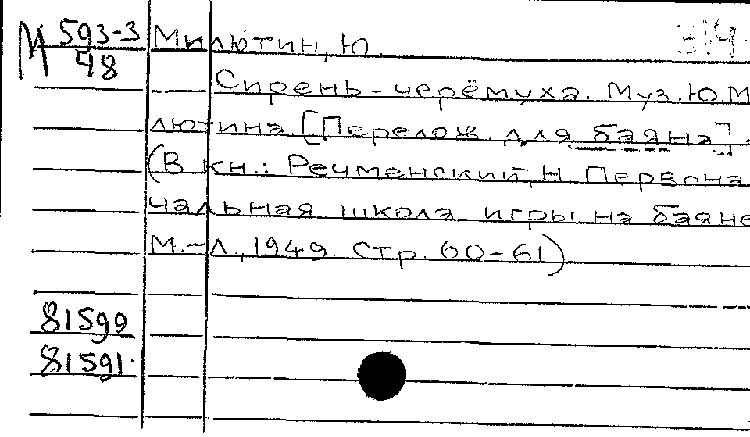 М 593-3 Милютин, Ю.
78
Сирень-черёмуха. Муз. Ю. М
лютина [Перелож. для баяна].
(В кн.: Речменский, Н. Первона
чальная школа игры на баяне
М.-Л., 1949 Стр. 60-61)
81599
81591.